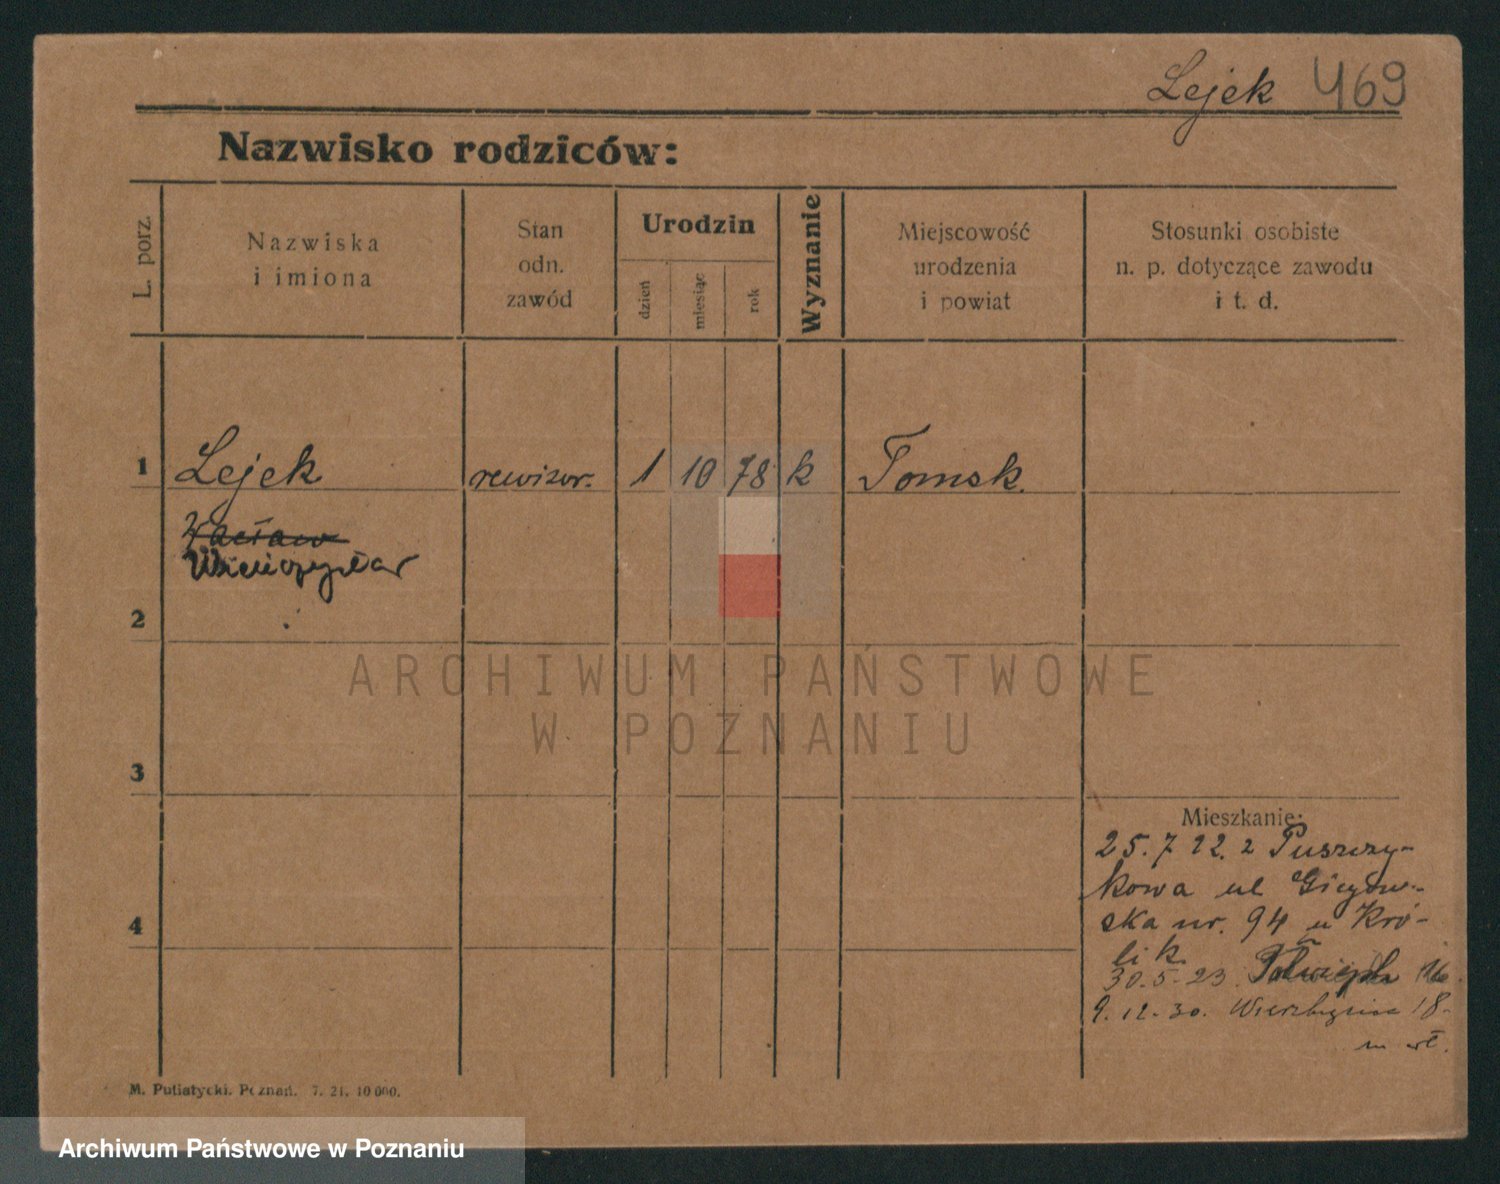 Lejek 469
Nazwisko rodziców:
L. porz.
Nazwiska
i imiona
Stan
odn.
zawód
Urodzin
dzień
miesiąc
rok
Wyznanie
Miejscowość
urodzenia
i powiat
Stosunki osobiste
n. p. dotyczące zawodu
i t. d.
1 Lejek rewizor. 1 10 78 k Tomsk.
Wacław
2
ARCHIWUM PAŃSTWOWE
W POZNANIU
3
Mieszkanie:
25.7 22. z Puszczy-
kowa ul
ska nr. 94 u Kró-
4
lik
30.5-23. 16
9.12-30. Wierzbięcice 18.
M. Putiatycki. Poznań. 7. 21. 10 000.
Archiwum Państwowe w Poznaniu